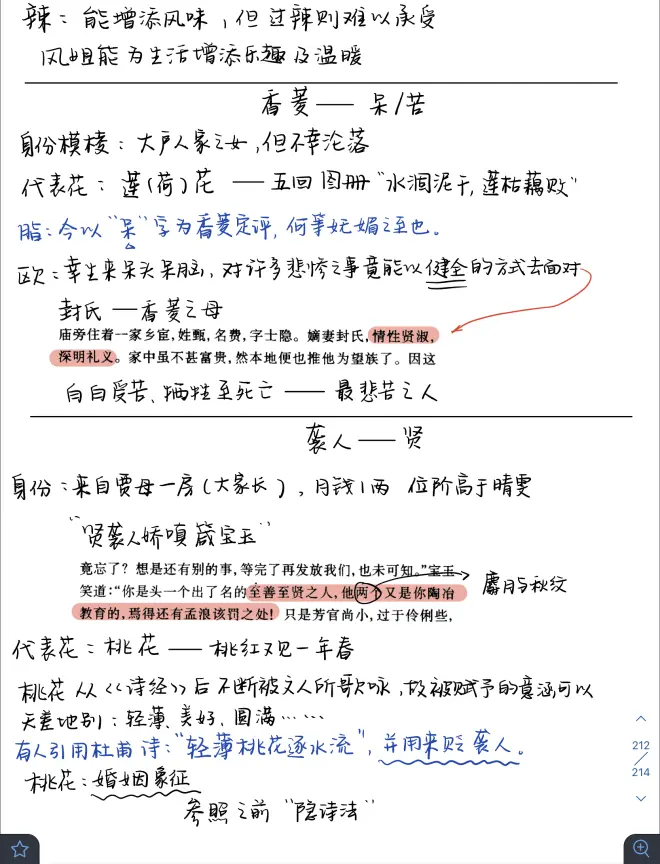 辣：能增添风味，但过辣则难以承受
凤姐能为生活增添乐趣及温暖
香菱——呆/苦
身份模棱：大户人家之女，但不幸沦落
代表花：莲(荷)花——五回图册“水涸泥干，莲枯藕败”
脂：今以“呆”字为香菱定评，何等妩媚之至也。
欧：幸生来呆头呆脑，对许多悲惨之事竟能以健全的方式去面对
封氏——香菱之母
庙旁住着一家乡宦，姓甄，名费，字士隐。嫡妻封氏，情性贤淑，
深明礼义。家中虽不甚富贵，然本地便也推他为望族了。因这
白白受苦、牺牲至死亡——最悲苦之人
袭人——贤
身份：来自贾母一房(大家长)，月钱1两 位阶高于晴雯
“贤袭人娇嗔箴宝玉”
竟忘了？想是还有别的事，等完了再发放我们，也未可知。”宝玉
笑道：“你是头一个出了名的至善至贤之人，他两个又是你陶冶
麝月与秋纹
教育的，焉得还有孟浪该罚之处！只是芳官尚小，过于伶俐些，
代表花：桃花——桃红又见一年春
桃花从《诗经》后不断被文人所歌咏，故被赋予的意涵可以
天差地别：轻薄、美好、圆满……
有人引用杜甫诗：“轻薄桃花逐水流”，并用来贬袭人。
桃花：婚姻象征
参照之前“隐诗法”
212
214